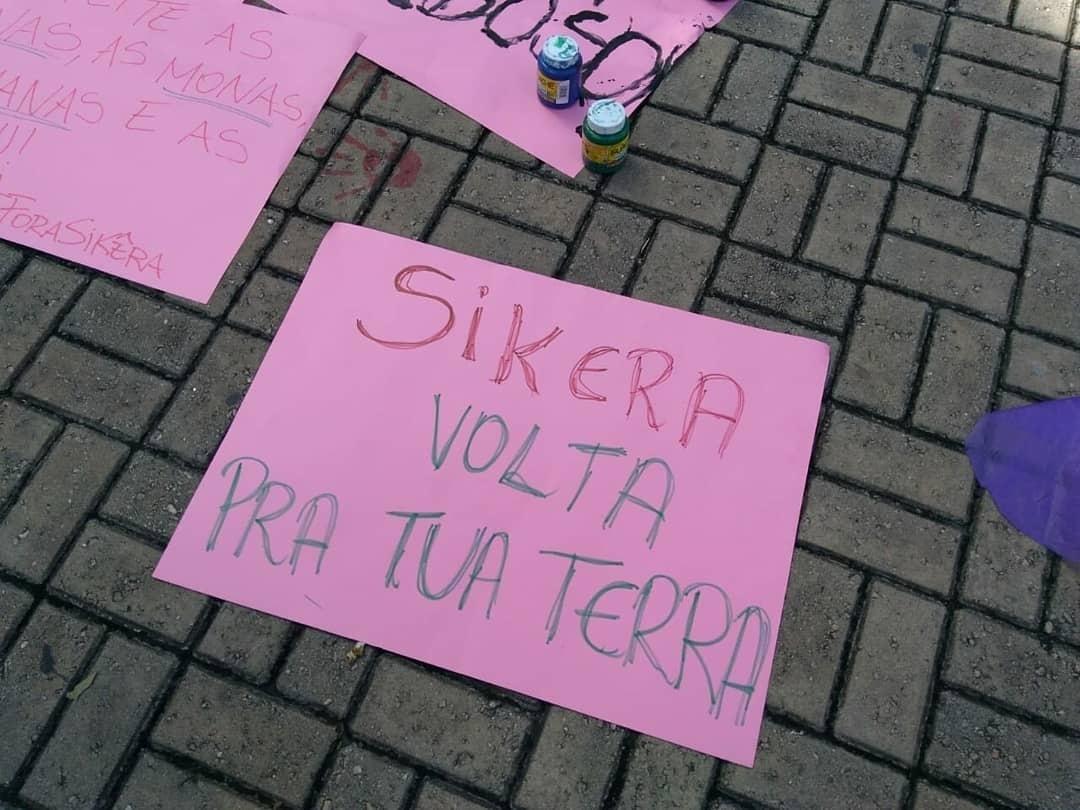 AS
AS, AS MONAS,
ANAS E AS
#FORASIKÊRA
SIKERA
VOLTA
PRA TUA TERRA